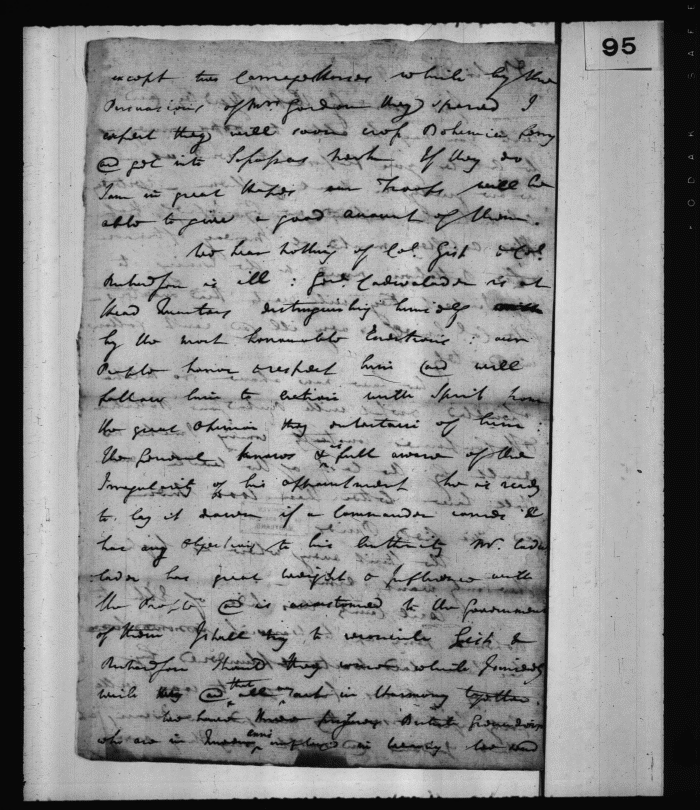 95
except two Carriage Horses which by the
Persuasions of Mrs Gordon they spared I
expect they will soon cross Bohemia ferry
& get into Sassafras Neck If they do
I am in great Hopes our Troops will be
able to give a good account of them.
We hear nothing of Col. Gist & Col.
Richardson is ill : Genl. Cadwalader is at
Head Quarters distinguishing himself
by the most honourable Exertions : our
People honor & respect him and will
follow him to action with Spirit from
the great Opinion they entertain of him :
The General knows & is full aware of the
Irregularity of his appointment he is ready
to lay it down if a Commander comes &
has any Objection to his Authority Mr. Cadwa
lader has great weight & Influence with
the People & is accustomed to the Government
of them I shall try to reconcile Gist &
Richardson should they come which I
wish they & that all act in Harmony together.
We have Prisoners British
who are in in we